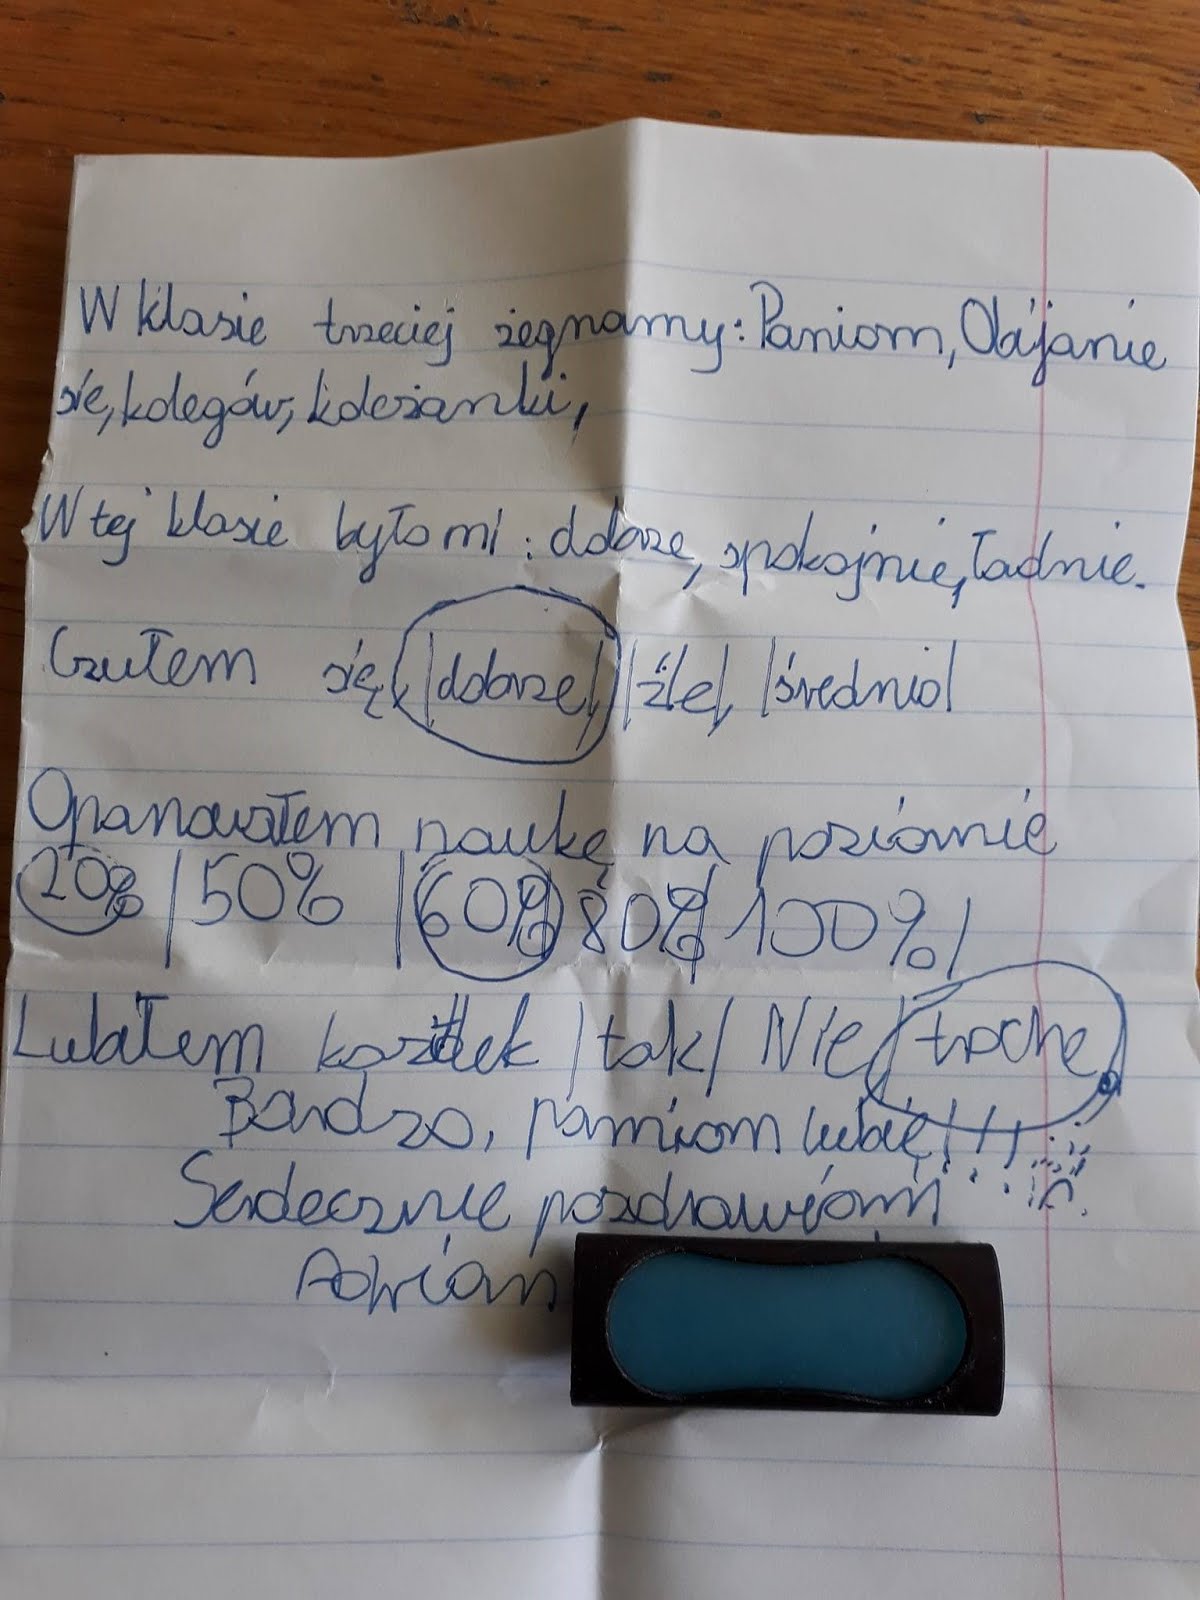 W klasie trzeciej żegnamy: Paniom, Obijanie
się, kolegów, koleżanki,
W tej klasie było mi: dobrze, spokojnie, ładnie.
Czułem się, |dobrze| |źle|, |średnio|
Opanowałem naukę na poziomie
20% | 50% | 60% | 80% | 100% |
Lubiłem każdek |tak| Nie |trochę.
Bardzo, paniom lubię!!!
Serdecznie pozdrawiam
Adrian